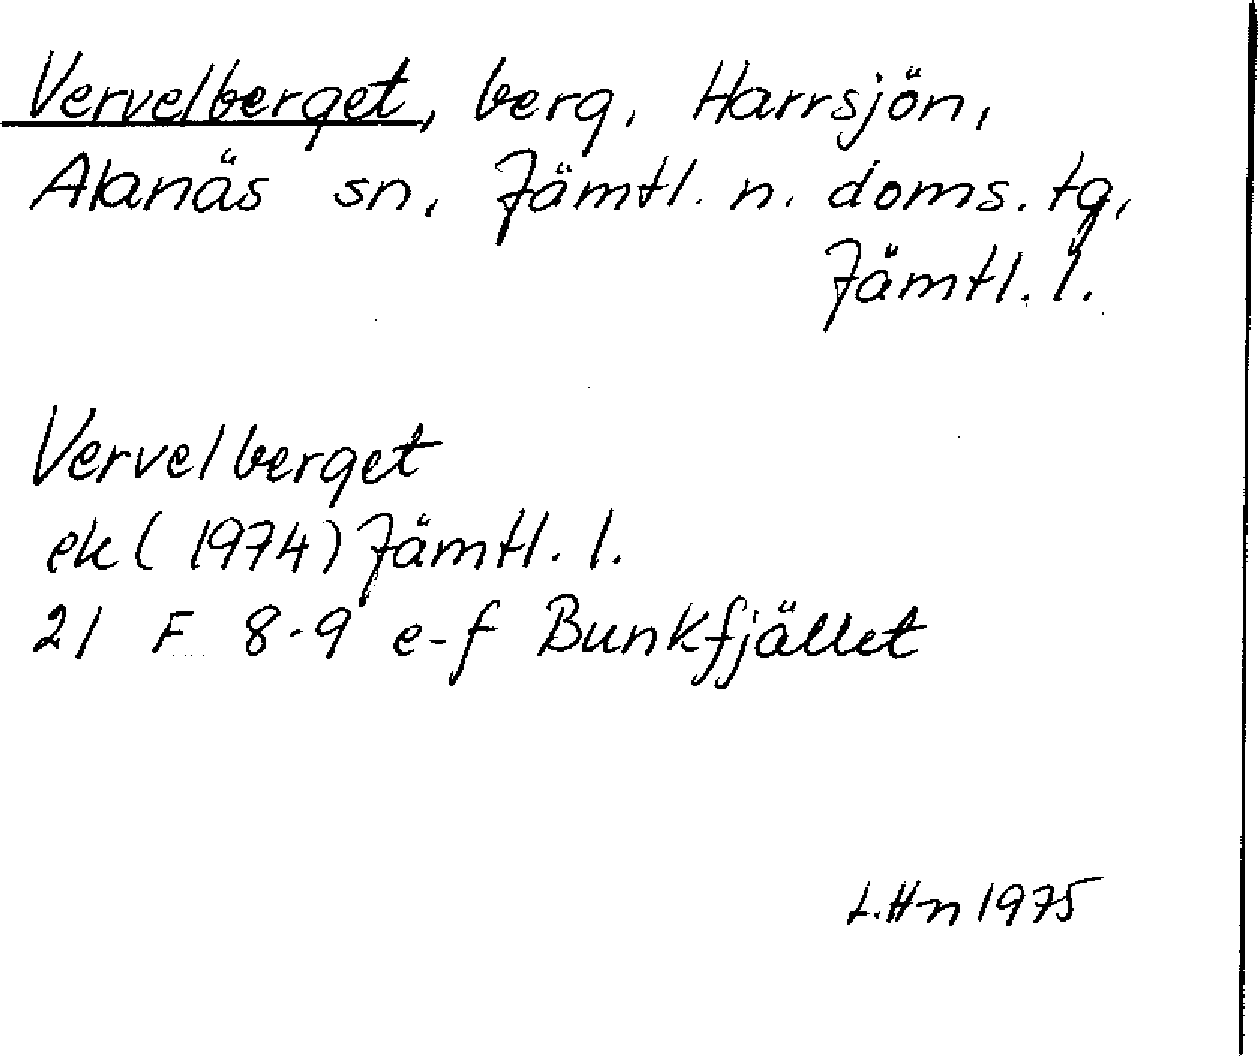 Vervelberget, berg, Harrsjön,
Alanäs sn, Jämtl. n. doms. tg,
Jämtl. l.
Vervelberget
ek (1974) Jämtl. l.
21 F 8-9 e-f Bunkfjället
L.Hn 1975